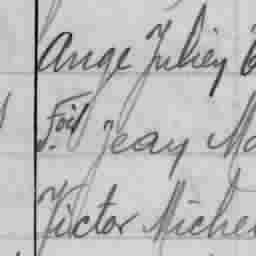 Ange Julien
Fois Jean Ma
Victor Michel